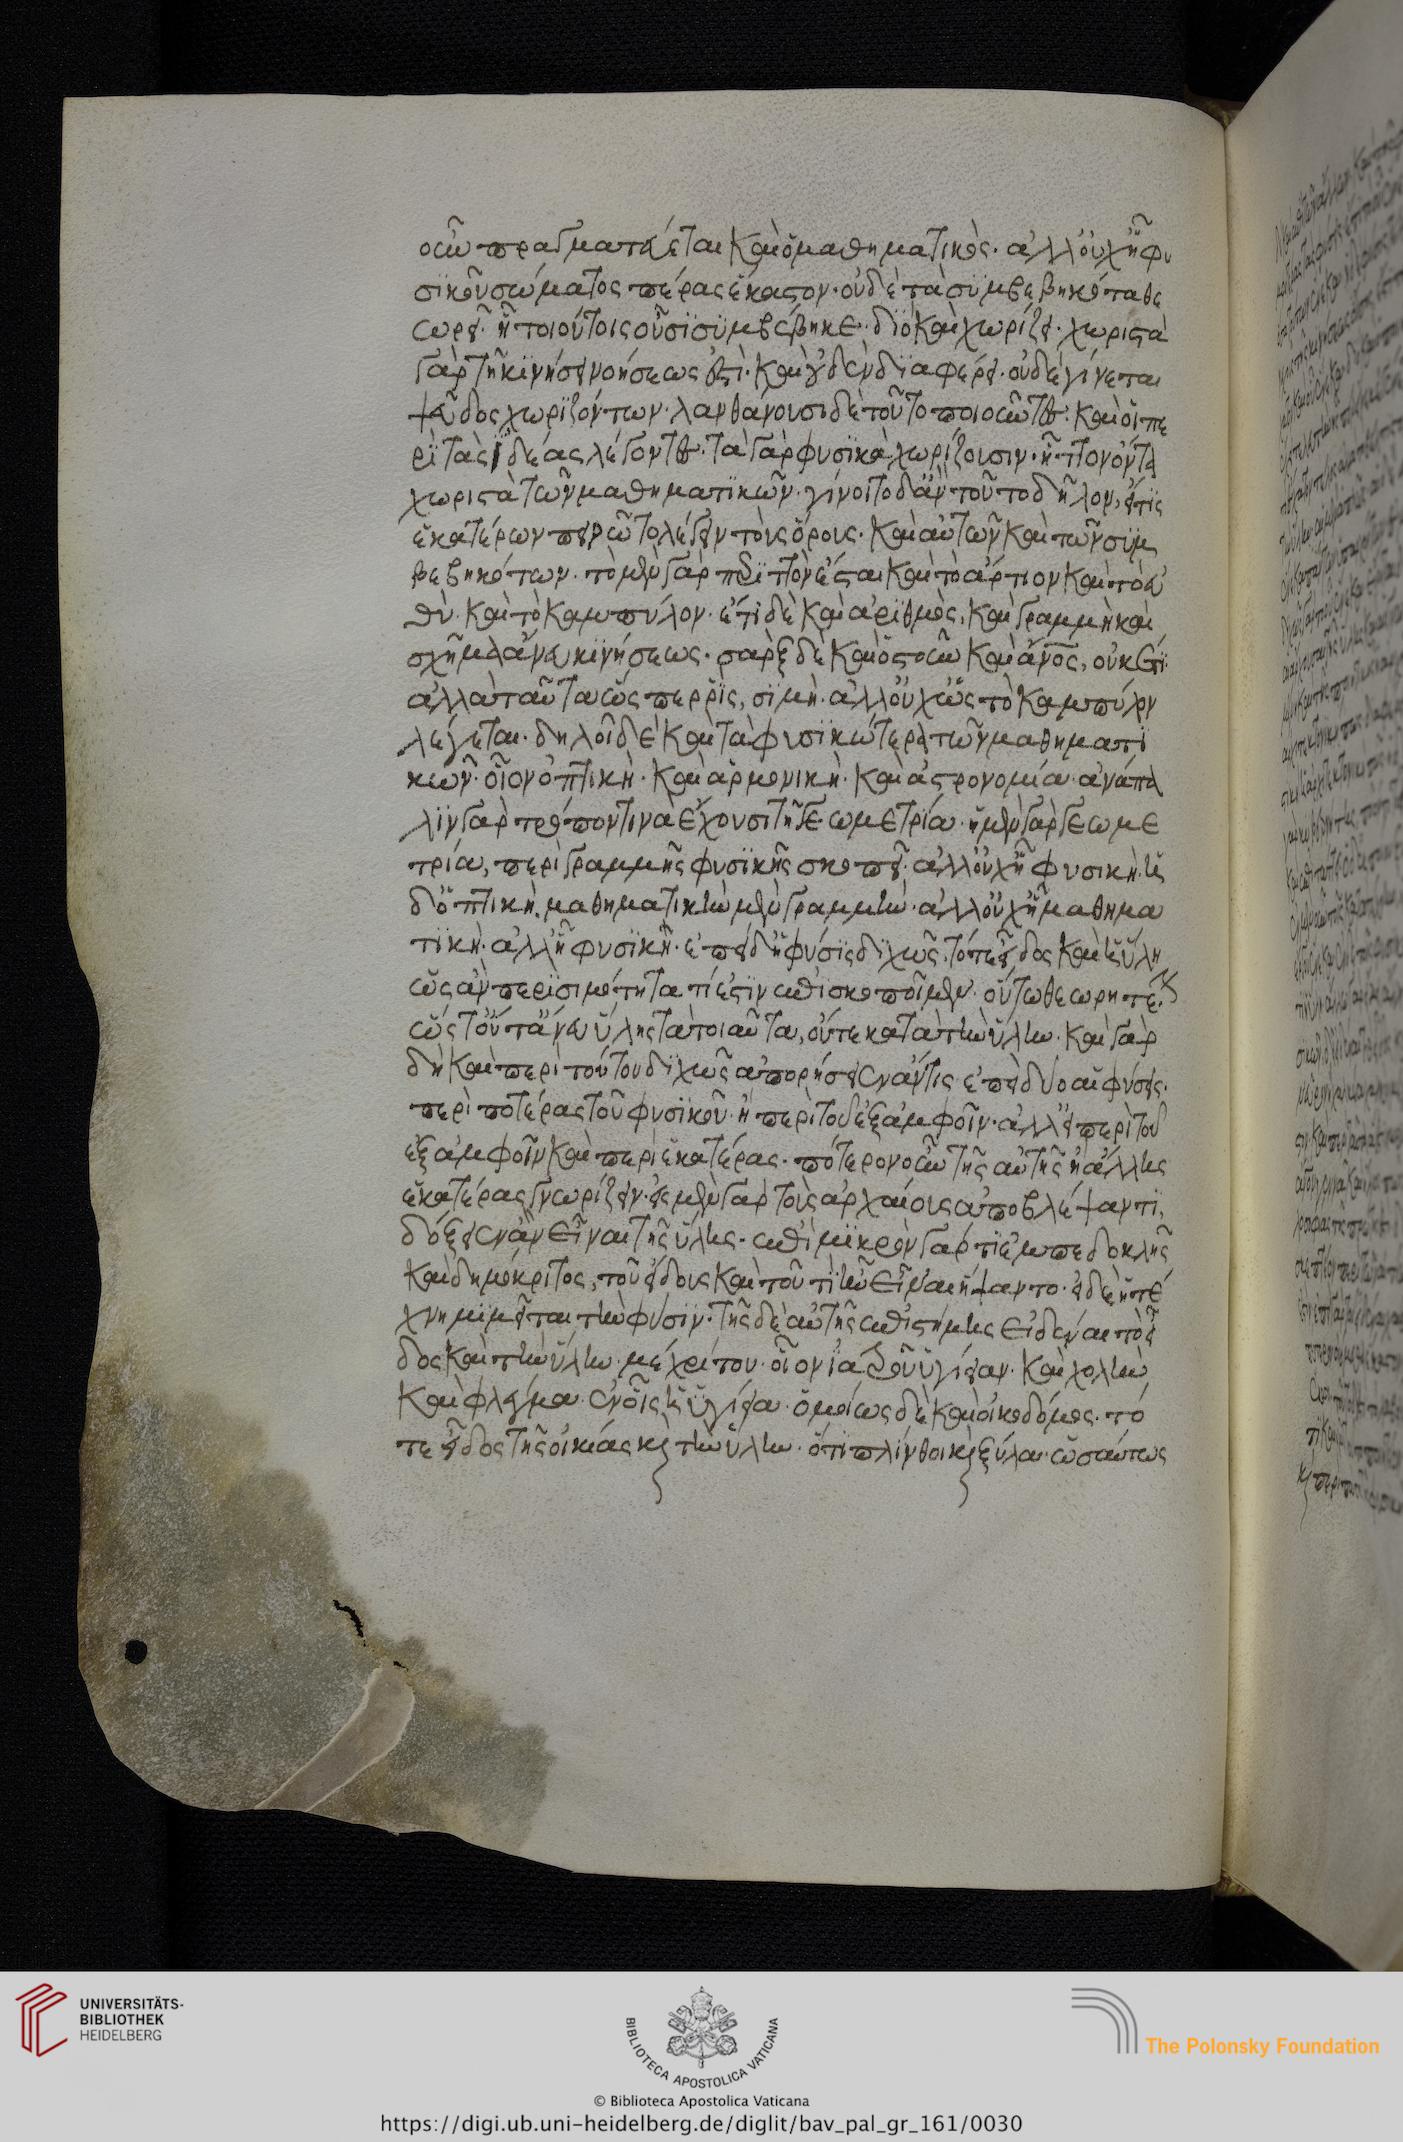 οὖν πραγματεύεται καὶ ὁ μαθηματικὸς· ἀλλ' οὐχ ᾗ φυ
σικοῦ σώματος πέρας ἕκαστον· οὐδὲ τὰ συμβεβηκότα θε
ωρεῖ· ᾗ τοιούτοις οὖσι συμβέβηκε· διὸ καὶ χωρίζει· χωριστὰ
γὰρ τῇ κινήσεων νοήσεως ἐστὶ· καὶ οὐδὲν διαφέρει· οὐδὲ γίνεται
ψεῦδος χωριζόντων· λανθάνουσι δὲ τοῦτο ποιοῦντες· καὶ οἱ πε
ρὶ τὰς ἰδέας λέγοντες· τὰ γὰρ φυσικὰ χωρίζουσιν· ἧττον ὄντα
χωριστὰ τῶν μαθηματικῶν· γίνοιτο δ' ἂν τοῦτο δῆλον, εἴ τις
ἑκατέρων πειρῶτο λέγειν τοὺς ὅρους· καὶ αὐτῶν καὶ τῶν συμ
βεβηκότων· τὸ μὲν γὰρ περιττὸν ἔσται καὶ τὸ ἄρτιον καὶ τὸ εὐ
θὺ· καὶ τὸ καμπύλον· ἔτι δὲ καὶ ἀριθμὸς, καὶ γραμμὴ καὶ
σχῆμα ἄνευ κινήσεως· σὰρξ δὲ καὶ ὀστοῦν καὶ ἄνος, οὐκέτι·
ἀλλὰ ταῦτα ὥσπερ ῥὶς, σιμὴ· ἀλλ' οὐχ ὡς τὸ καμπύλον
λέγεται· δηλοῖ δὲ καὶ τὰ φυσικώτερα τῶν μαθηματι
κῶν· οἷον ὀπτικὴ· καὶ ἁρμονικὴ· καὶ ἀστρονομία· ἀνάπα
λιν γὰρ τρόπον τινὰ ἔχουσι τῇ γεωμετρία· ἡ μὲν γὰρ γεωμε
τρία, περὶ γραμμῆς φυσικῆς σκοπεῖ· ἀλλ' οὐχ ᾗ φυσικὴ· ἡ
δ' ὀπτικὴ· μαθηματικὴν μὲν γραμμὴν· ἀλλ' οὐχ ᾗ μαθημα
τικὴ· ἀλλ' ᾗ φυσικὴ· ἐπεὶ δ' ἡ φύσις διχῶς, τό τε εἶδος καὶ ἡ ὕλη
ὡς ἂν περὶ σιμότητα τί ἐστιν ἐπισκοποῖμεν· οὕτω θεωρητέον
ὥστ' οὔτ' ἄνευ ὕλης τὰ τοιαῦτα, οὔτε κατὰ τὴν ὕλην· καὶ γὰρ
δὴ καὶ περὶ τούτου διχῶς ἀπορήσειεν ἄν τις ἐπεὶ δύο αἱ φύσεις·
περὶ ποτέρας τοῦ φυσικοῦ· ἢ περὶ τοῦ ἐξ ἀμφοῖν· ἀλλ' εἰ περὶ τοῦ
ἐξ ἀμφοῖν καὶ περὶ ἑκατέρας· πότερον οὖν τῆς αὐτῆς ἢ ἄλλης
ἑκατέρας γνωρίζειν· εἰς μὲν γὰρ τοὺς ἀρχαίους ἀποβλέψαντι,
δόξειεν ἂν εἶναι τῆς ὕλης· ἐπὶ μικρὸν γάρ τι ἐμπεδοκλῆς
καὶ δημόκριτος, τοῦ εἴδους καὶ τοῦ τί ἦν εἶναι ἥψαντο· εἰ δὲ ἡ τέ
χνη μιμεῖται τὴν φύσιν· τῆς δὲ αὐτῆς ἐπιστήμης εἰδέναι τὸ εἶ
δος καὶ τὴν ὕλην μέχρι του· οἷον ἰατροῦ ὑγίειαν· καὶ χολὴν
καὶ φλέγμα· ἐν οἷς ἡ ὑγίεια· ὁμοίως δὲ καὶ οἰκοδόμος· τό
τε εἶδος τῆς οἰκίας καὶ τὴν ὕλην· ὅτι πλίνθοι καὶ ξύλα· ὡσαύτως
UNIVERSITÄTS-
BIBLIOTHEK
HEIDELBERG
BIBLIOTECA APOSTOLICA VATICANA
© Biblioteca Apostolica Vaticana
The Polonsky Foundation
https://digi.ub.uni-heidelberg.de/diglit/bav_pal_gr_161/0030